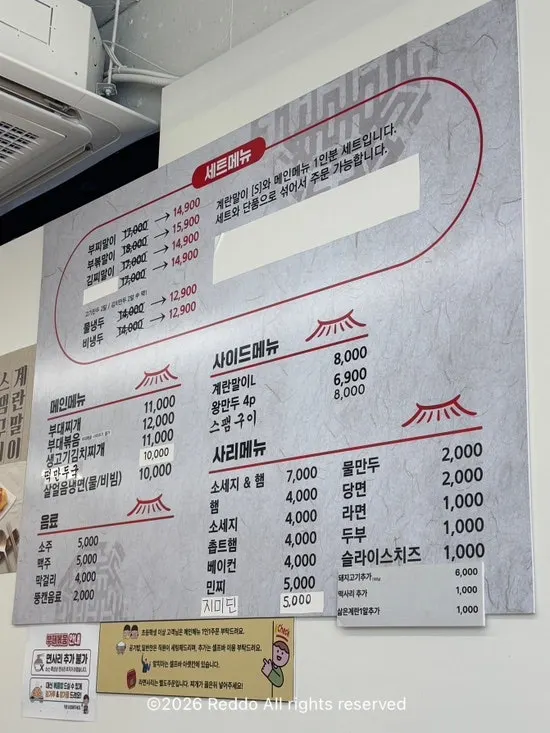 세트메뉴
계란말이 [S]와 메인메뉴 1인분 세트입니다.
세트와 단품으로 섞어서 주문 가능합니다.
부찌말이 17,000 → 14,900
부볶말이 18,000 → 15,900
김찌말이 17,000 → 14,900
17,000 → 14,900
물냉두 14,000 → 12,900
비냉두 14,000 → 12,900
메인메뉴
부대찌개 11,000
부대볶음 12,000
생고기김치찌개 11,000
떡만두국 10,000
살얼음냉면(물/비빔) 10,000
음료
소주 5,000
맥주 5,000
막걸리 4,000
뚱캔음료 2,000
사이드메뉴
계란말이L 8,000
왕만두 4p 6,900
스팸구이 8,000
사리메뉴
소세지 & 햄 7,000
햄 4,000
소세지 4,000
촙트햄 4,000
베이컨 4,000
민찌 5,000
지미딘 5,000
물만두 2,000
당면 2,000
라면 1,000
두부 1,000
슬라이스치즈 1,000
돼지고기추가 6,000
떡사리 추가 1,000
삶은계란1알추가 1,000
스계
팸란
구말
이이
부대볶음 안내
면사리 추가 불가
초등학생 이상 고객님은 메인메뉴 1인1주문 부탁드려요.
라면사리는 별도주문입니다. 찌개가 끓은뒤 넣어주세요!
Check
©2026 Reddo All rights reserved